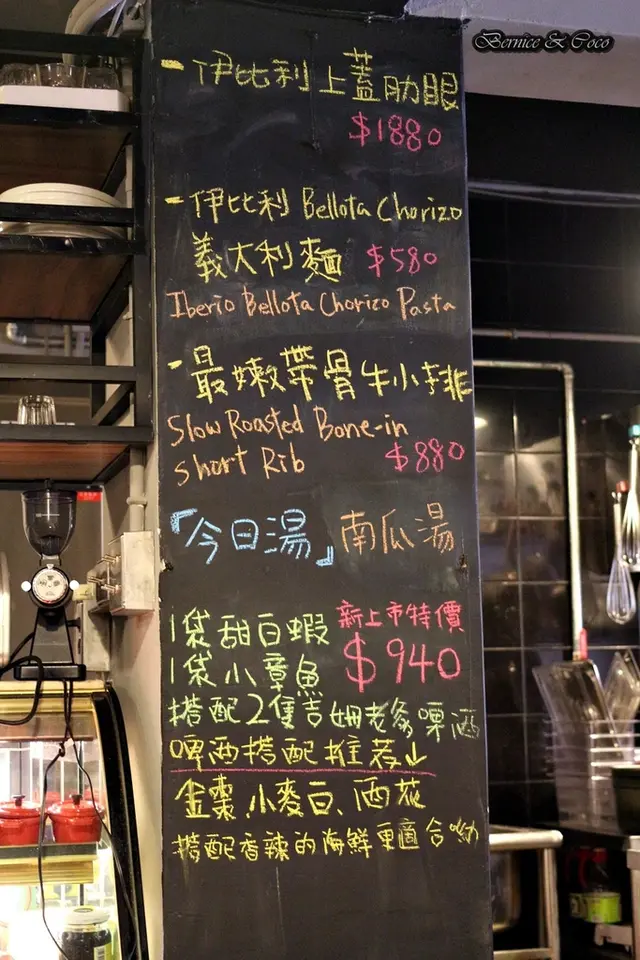 Bernice & Coco
- 伊比利上蓋肋眼
$1880
- 伊比利 Bellota Chorizo
義大利麵 $580
Iberio Bellota Chorizo Pasta
- 最嫩帶骨牛小排
Slow Roasted Bone-in
short Rib $880
『今日湯』南瓜湯
1袋甜白蝦 新上市特價
1袋小章魚 $940
搭配2隻吉姆老爹啤酒
啤酒搭配推荐↓
金棗、小麥白、西荻
搭配香辣的海鮮更適合呦